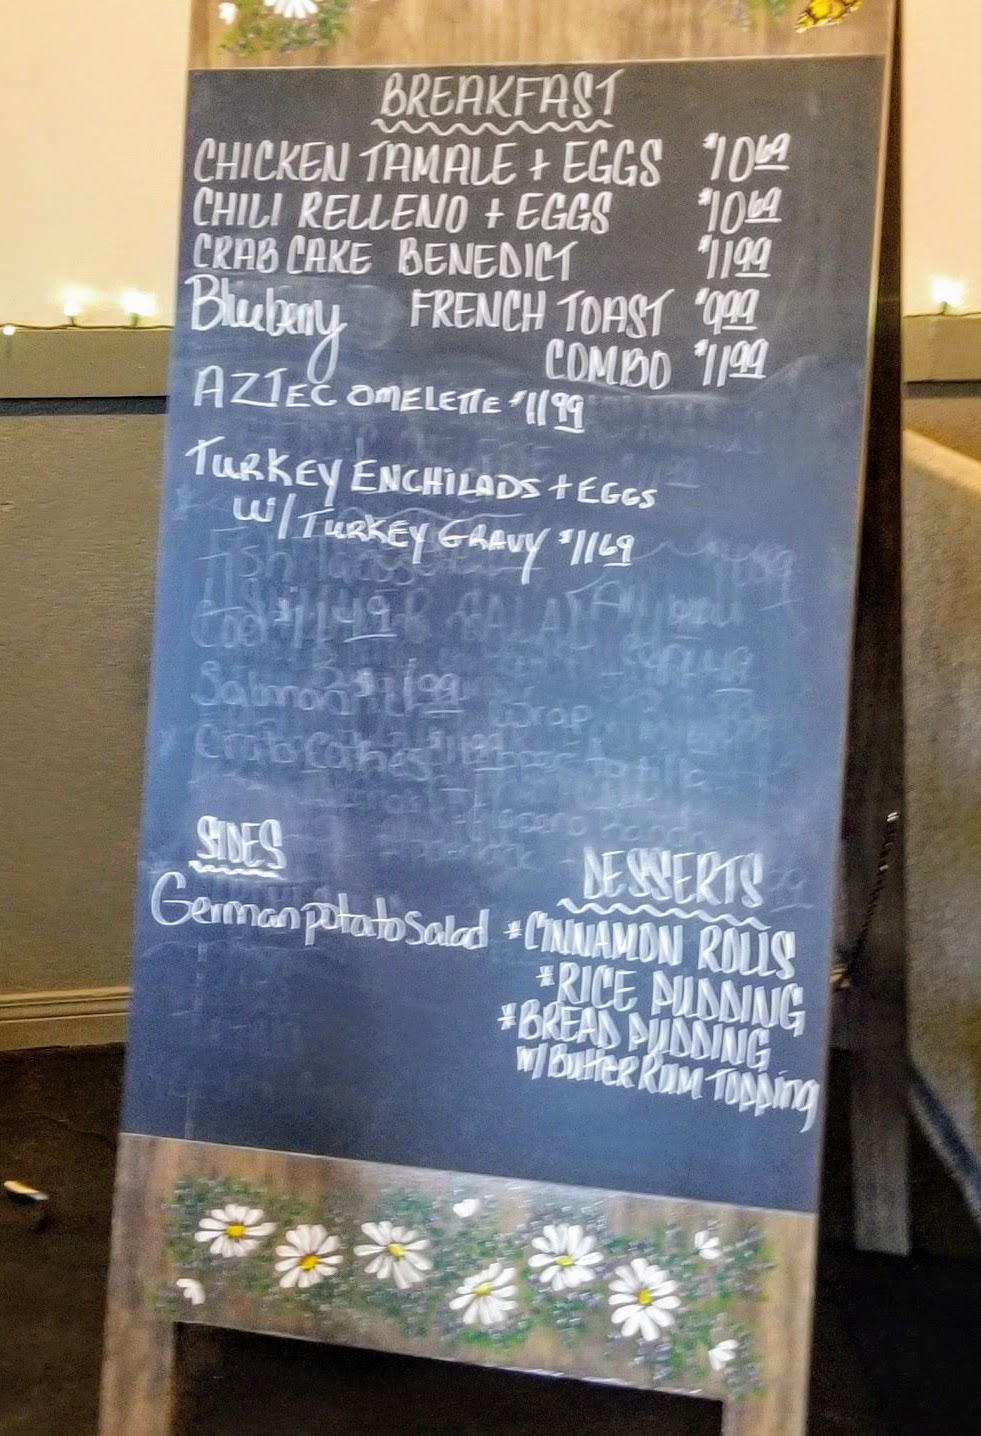 BREAKFAST
CHICKEN TAMALE + EGGS $10.69
CHILI RELLENO + EGGS $10.69
CRAB CAKE BENEDICT $11.99
Blueberry FRENCH TOAST $9.99
COMBO $11.99
AZTEC OMELETTE $11.99
TURKEY ENCHILADS + EGGS
W/ TURKEY GRAVY $11.69
Fish
Cod $11.49
Salmon
Wrap
Crab Cakes $11.99
SIDES
German potato Salad
DESSERTS
* CINNAMON ROLLS
* RICE PUDDING
* BREAD PUDDING
w/ Butter Rum Topping